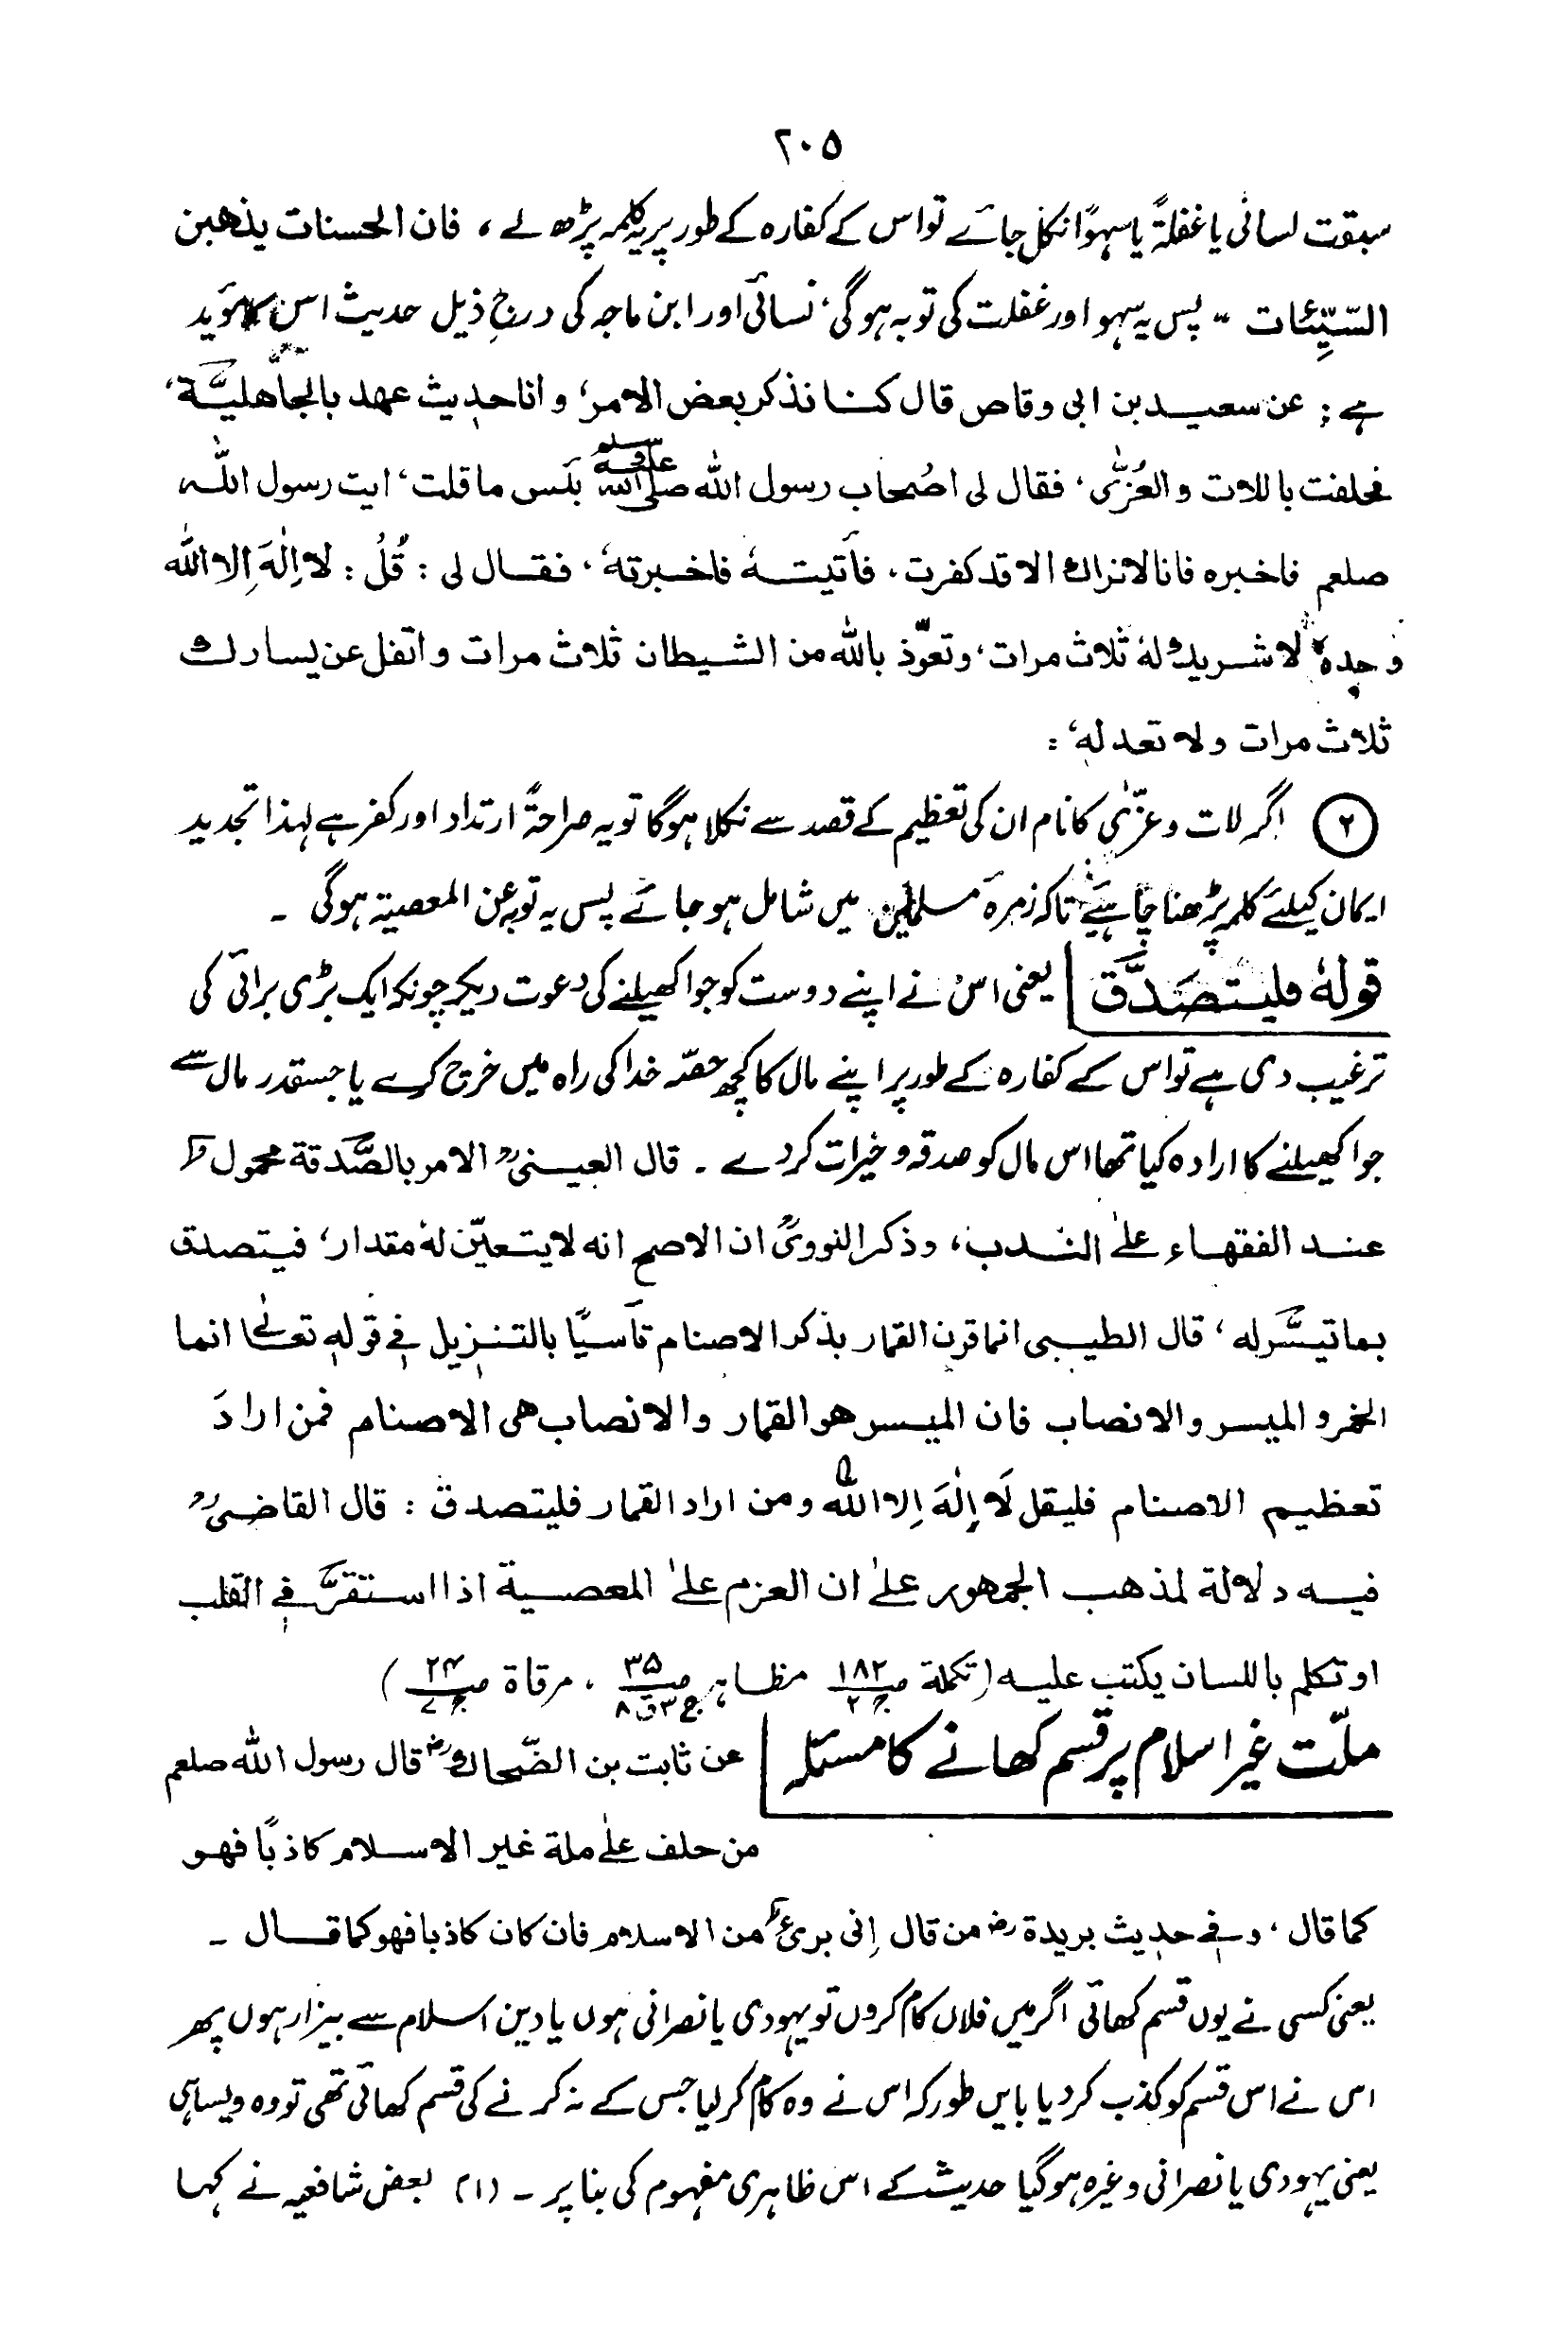 ۲۰۵
سبقت لسانی یا غفلۃً یا سہوًا نکل جائے تو اس کے کفارہ کے طور پر یہ کلمہ پڑھ لے ، فان الحسنات یذھبن
السّیِّئات ـ پس یہ سہو اور غفلت کی توبہ ہوگی، نسائی اور ابن ماجہ کی درج ذیل حدیث اس کا مؤید
ہے : عن سعید بن ابی وقاص قال کنا نذکر بعض الامر، وانا حدیث عھد بالجاھلیّۃ،
فحلفت باللات والعُزّٰی، فقال لی اصُحاب رسول اللہ صلی اللہ علیہ وسلم بئس ما قلت، ایت رسول اللہ
صلعم فاخبرہ فانا لا نراک الا قد کفرت، فأتیتہٗ فاخبرتہٗ، فقال لی : قُلُ : لا اِلٰہَ اِلا اللہ
وحدہٗ لا شریک لہٗ ثلاث مرات، وتعوّذ باللہ من الشیطان ثلاث مرات واتفل عن یسارك
ثلاث مرات ولا تعد لہٗ :
② اگر لات و عزّٰی کا نام ان کی تعظیم کے قصد سے نکلا ہوگا تو یہ صراحۃً ارتداد اور کفر ہے لہذا تجدید
ایمان کیلئے کلمہ پڑھنا چاہیئے تاکہ زمرہ مسلمین میں شامل ہو جائے پس یہ توبہ عن المعصیۃ ہوگی ۔
قولہٗ فلیتصَدَّق یعنی اس نے اپنے دوست کو جوا کھیلنے کی دعوت دیکر چونکہ ایک بڑی برائی کی
ترغیب دی ہے تو اس کے کفارہ کے طور پر اپنے مال کا کچھ حصّہ خدا کی راہ میں خرچ کرے یا جسقدر مال سے
جوا کھیلنے کا ارادہ کیا تھا اس مال کو صدقہ و خیرات کر دے ۔ قال العینیؒ الامر بالصَّدقۃ محمول
عند الفقہاء علی الندب، وذکر النوویؒ ان الاصح انہ لا یتعیّن لہٗ مقدار، فیتصدق
بما تیسَّر لہ، قال الطیبی انما قرن القمار بذکر الاصنام تأسیًا بالتنزیل فی قولہ تعالیٰ انما
الخمر و المیسر والانصاب فان المیسر ھو القمار والانصاب ھی الاصنام فمن ارادَ
تعظیم الاصنام فلیقل لَا اِلٰہَ اِلا اللہ ومن اراد القمار فلیتصدق : قال القاضیؒ
فیہ دلالۃ لمذھب الجمھور علیٰ ان العزم علیٰ المعصیۃ اذا استقرَّ فی القلب
او تکلم باللسان یکتب علیہ (تکملۃ صـ۱۸۲ جـ۲ مظاہر صـ۳۵ جـ۳ ق۸ ، مرقاۃ صـ۲۴ جـ۷)
ملّت غیر اسلام پر قسم کھانے کا مسئلہ عن ثابت بن الضّحاکؓ قال رسول اللہ صلعم
من حلف علیٰ ملۃ غیر الاسلام کاذبًا فھو
کما قال، وفی حدیث بریدۃ رض من قال اِنی برئ من الاسلام فان کان کاذبا فھو کما قال ۔
یعنی کسی نے یوں قسم کھائی اگر میں فلاں کام کروں تو یہودی یا نصرانی ہوں یا دین اسلام سے بیزار ہوں پھر
اس نے اس قسم کو کذب کر دیا بایں طور کہ اس نے وہ کام کر لیا جس کے نہ کرنے کی قسم کھائی تھی تو وہ ویسا ہی
یعنی یہودی یا نصرانی وغیرہ ہوگیا حدیث کے اس ظاہری مفہوم کی بنا پر ۔ (۱) بعض شافعیہ نے کہا